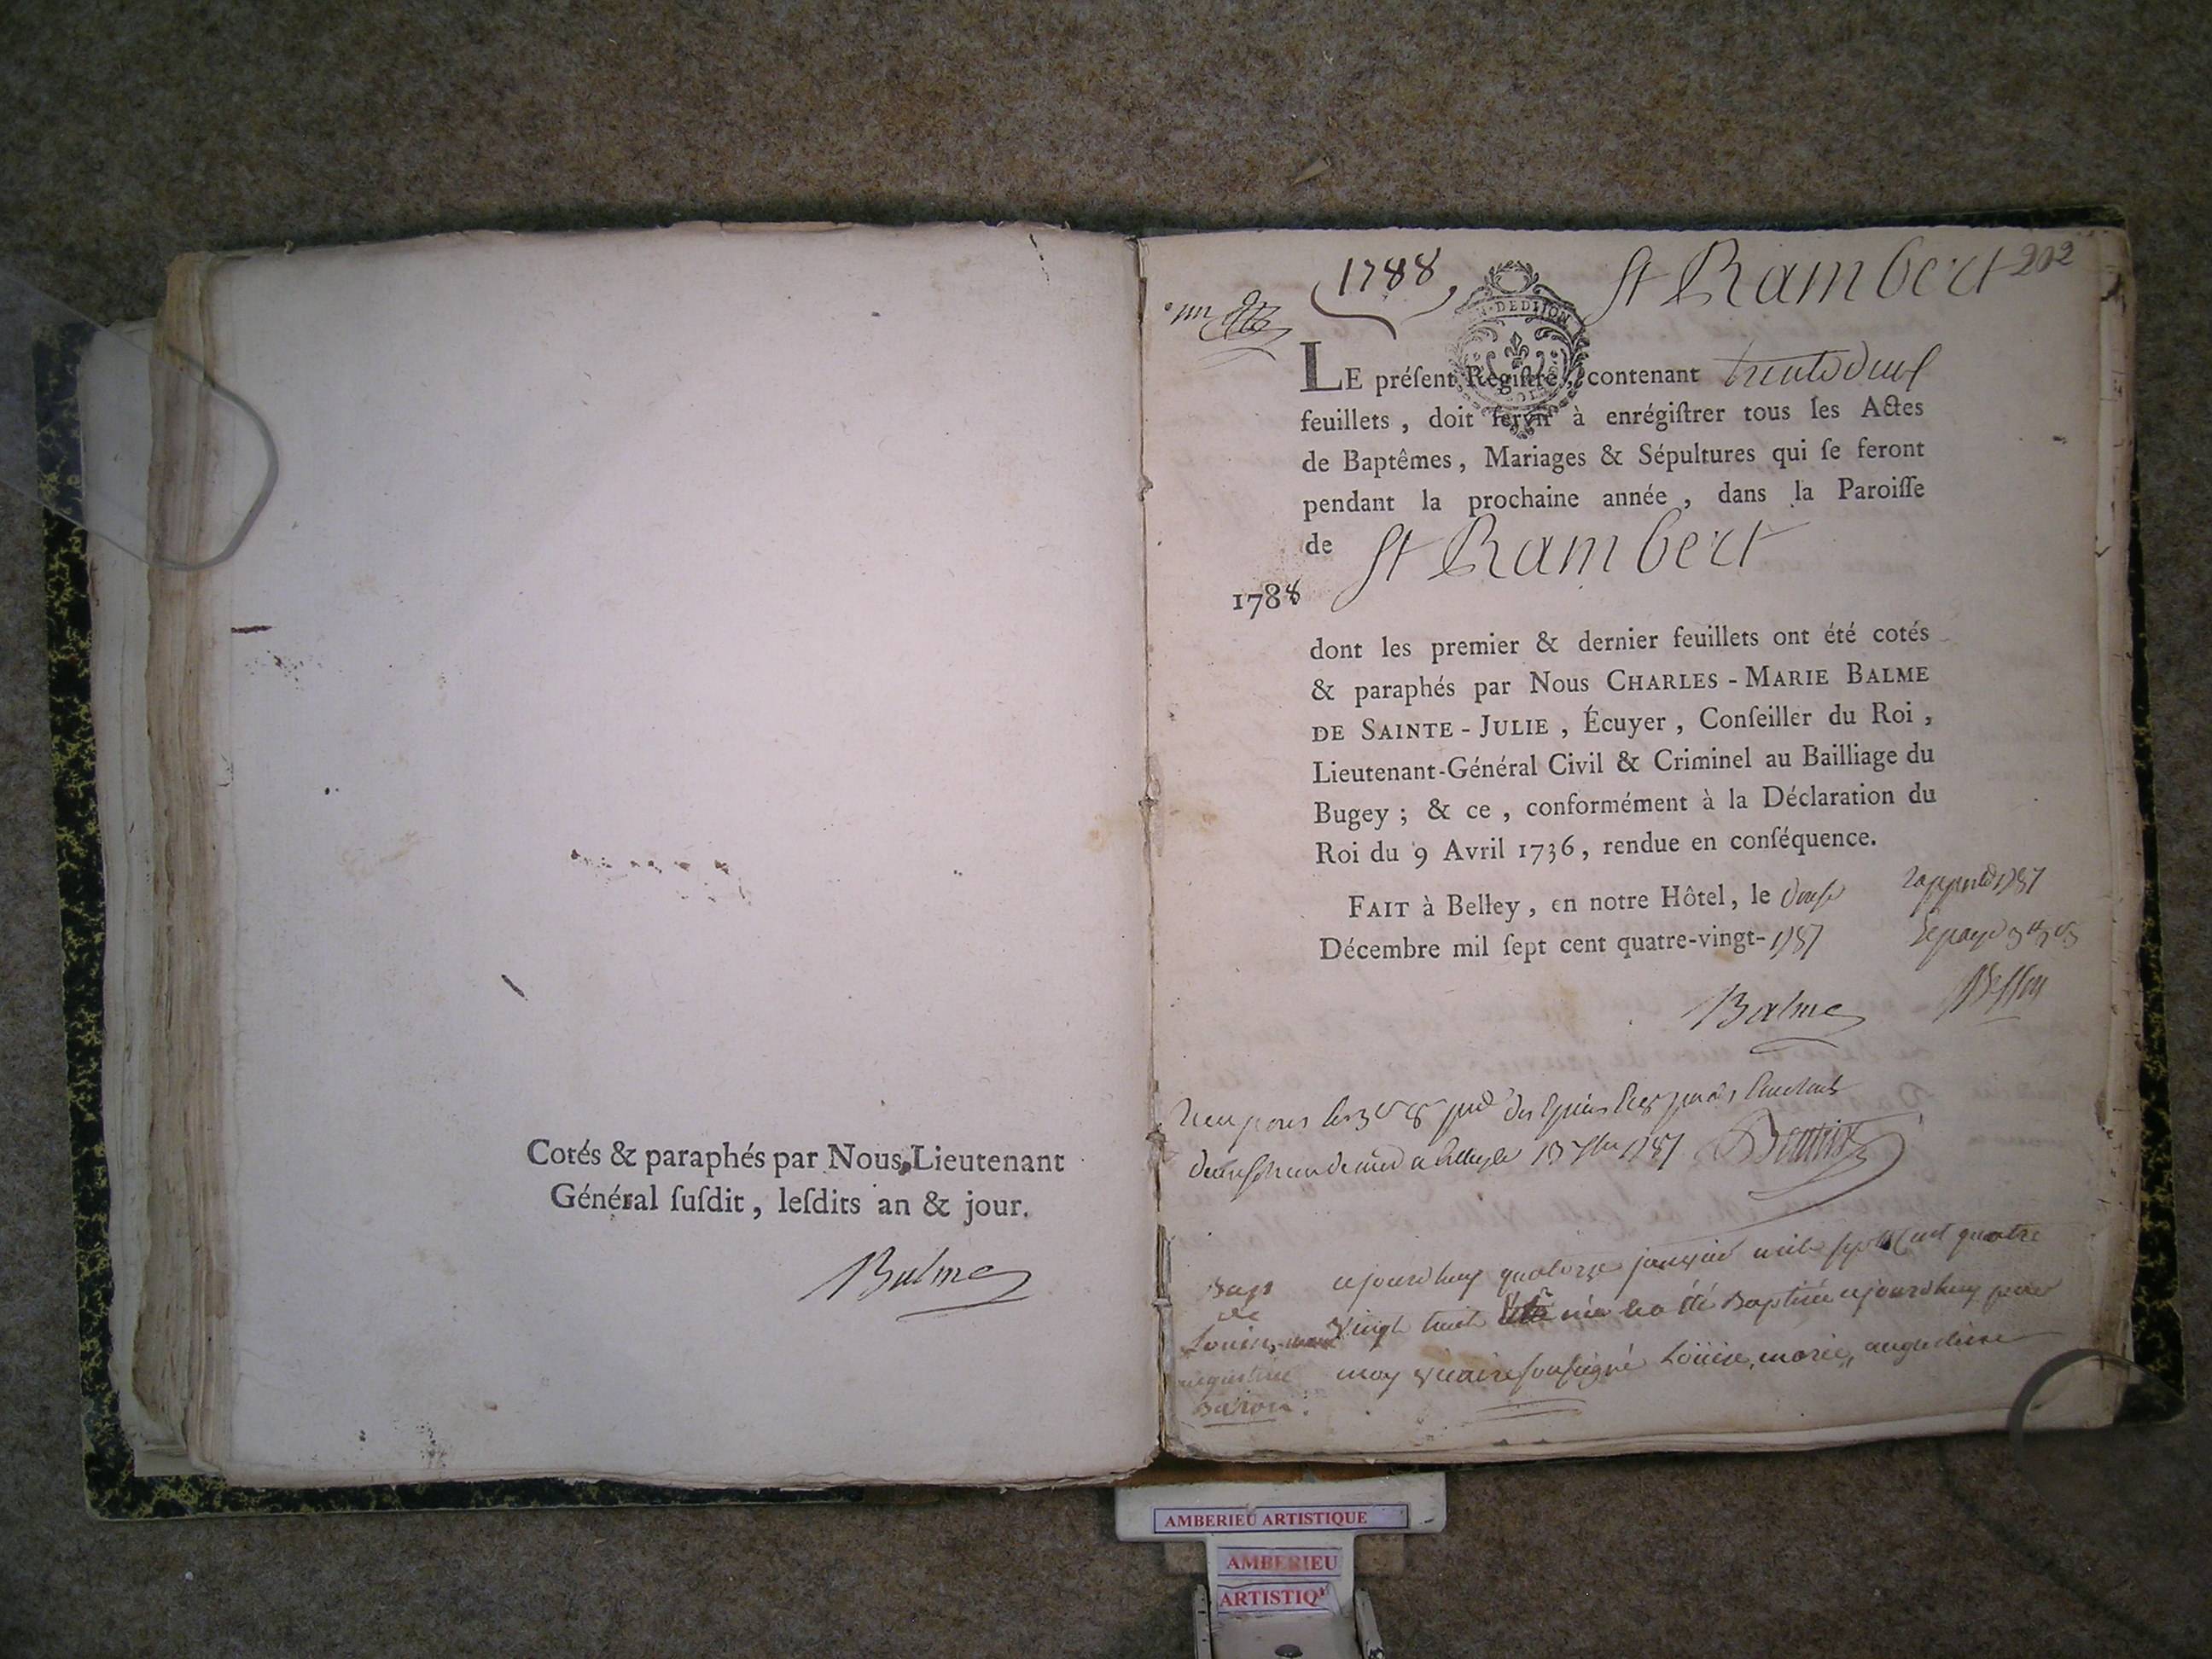 Cotés & paraphés par Nous, Lieutenant
Général ſuſdit, leſdits an & jour.
Balme
1788
St Rambert 202
LE préſent Regiſtre, contenant trente deux
feuillets, doit ſervir à enrégiſtrer tous les Actes
de Baptêmes, Mariages & Sépultures qui ſe feront
pendant la prochaine année, dans la Paroiſſe
de St Rambert
1788
dont les premier & dernier feuillets ont été cotés
& paraphés par Nous CHARLES-MARIE BALME
DE SAINTE-JULIE, Écuyer, Conſeiller du Roi,
Lieutenant-Général Civil & Criminel au Bailliage du
Bugey; & ce, conformément à la Déclaration du
Roi du 9 Avril 1736, rendue en conſéquence.
FAIT à Belley, en notre Hôtel, le douse
Décembre mil ſept cent quatre-vingt-1787
Balme
Bapt
de
Louise
augustine
Baron
ajourdhuy quatorze janvier mile sept cent quatre
vingt huit née et a été Baptisée ajourdhuy par
moy vicaire soussigné Loüise, marie, augustine
AMBERIEU ARTISTIQUE
AMBERIEU
ARTISTIQ